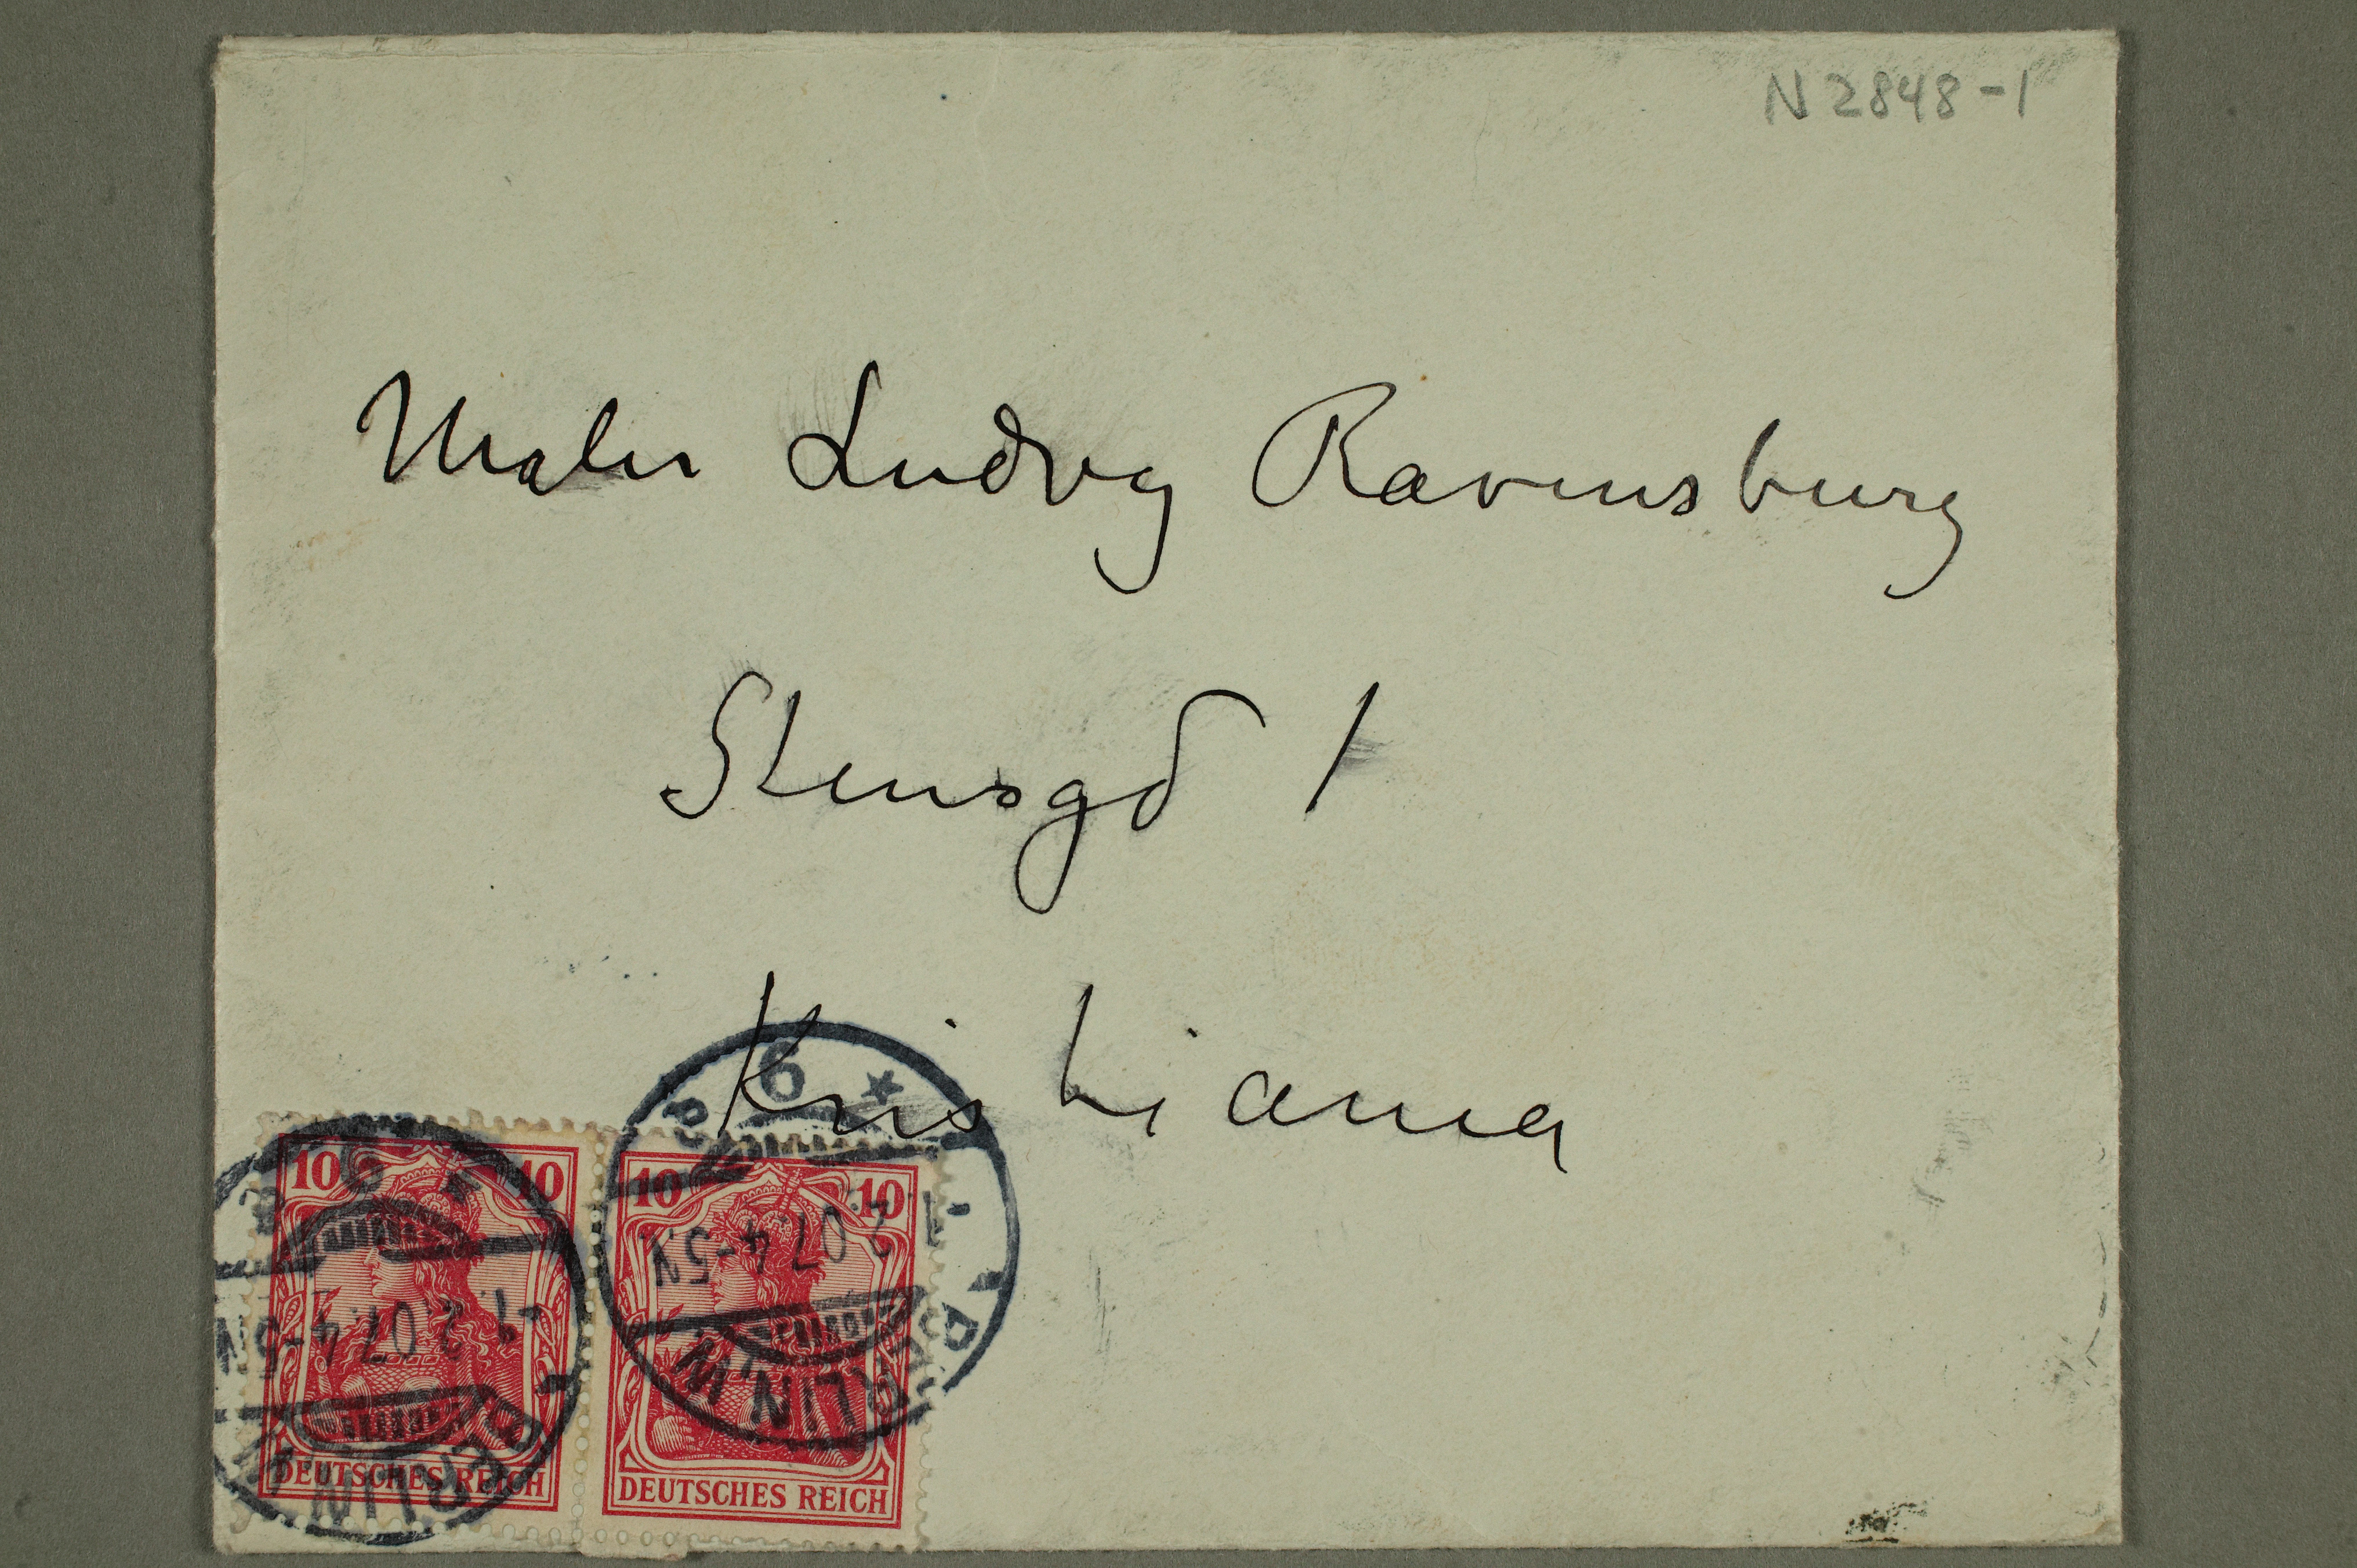 N 2848-1
Maler Ludvig Ravensburg
Stensgd 1
Kristiania
10 10
DEUTSCHES REICH
10 10
DEUTSCHES REICH
BERLIN
-1.2.07.4-5N
BERLIN W.
1.2.07.4-5N
9